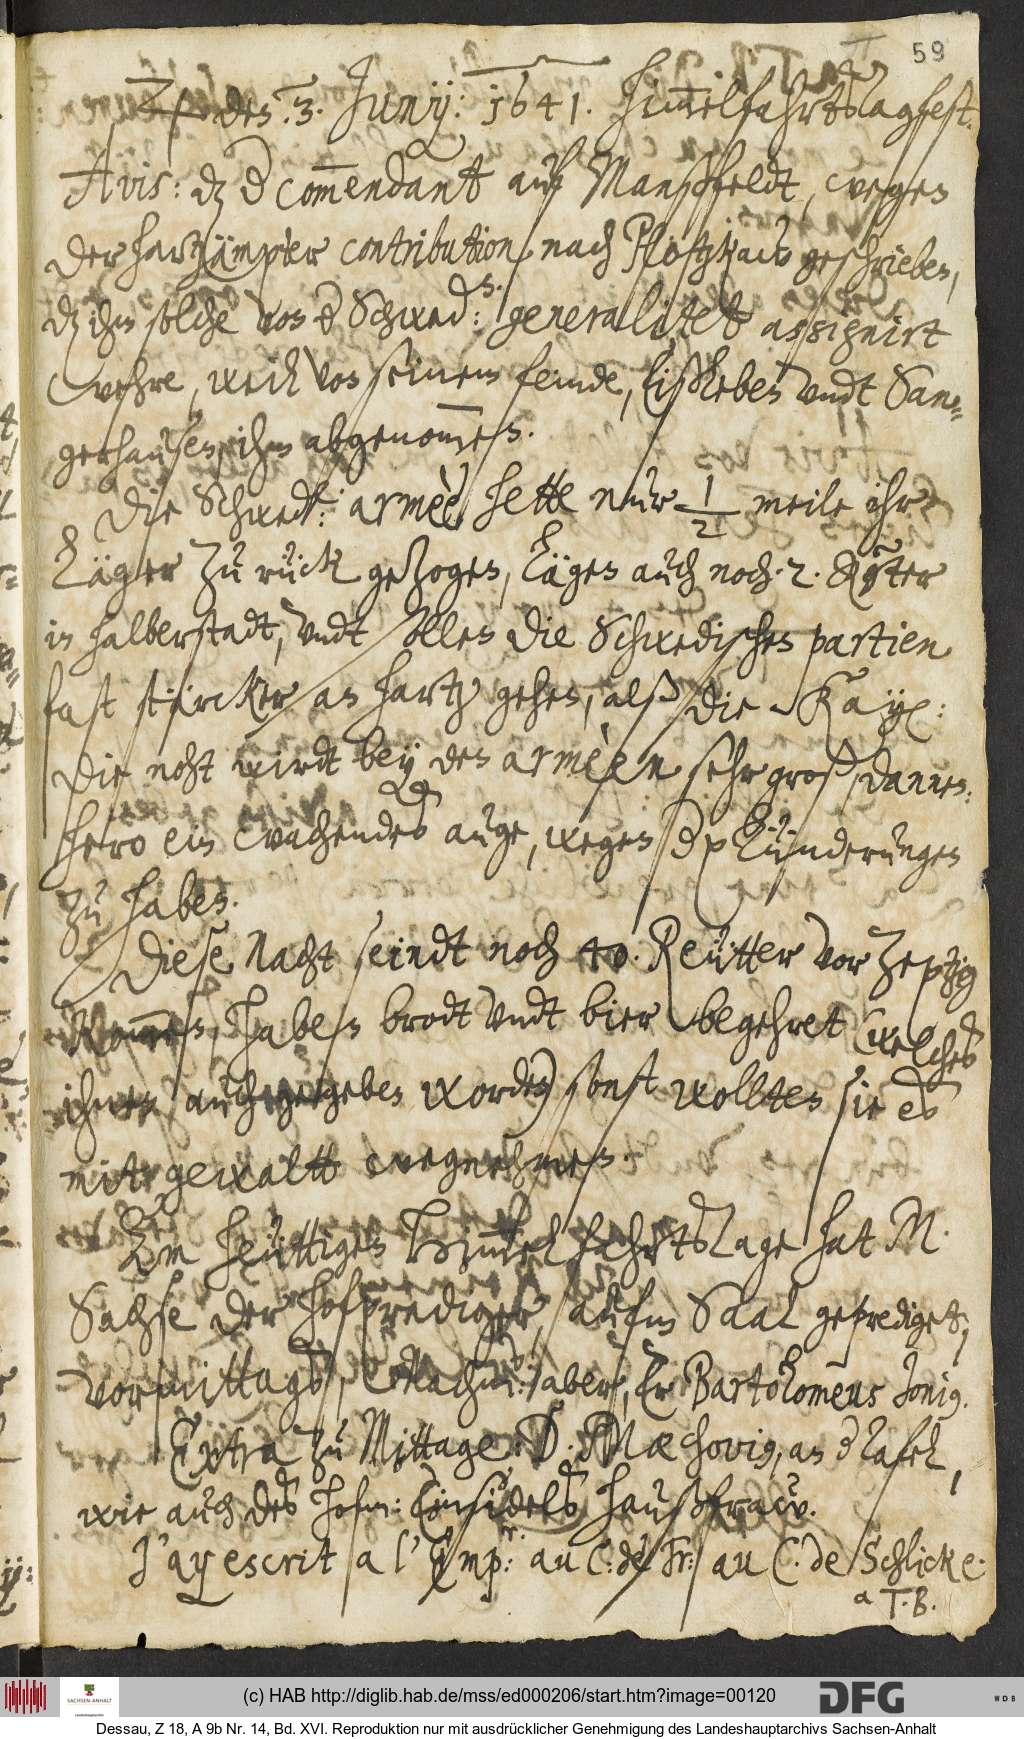 59
♃ den 3. Junij: 1641. Him̅elfahrtstagfest.
Avis: dz d Com̅endant auf Manßfeldt, wegen
der hartzämpter contribution, nach Plötzkaw geschrieben,
dz ihm solche von d Schwed: generalitet assignirt
wehre, weil von seinem feinde, Eißleben undt San=
gerhausen, ihm abgenom̅en.
Die Schwed: armèe hette nur 1/2 meile ihr
Läger zu rück gezogen, Lägen auch noch 2. Rgter
in halberstadt, undt sollen die Schwedischen partien
fast stärcker an hartz gehen, alß die Kay:
Die noht wirdt bey den armèen sehr groß, dannen:
hero ein wachendes auge, wegen d plünderungen
zu haben.
Diese Nacht seindt noch 40. Reütter vor Zeptzig
kom̅en, haben brodt undt bier begehret (welches
ihnen auch gegeben worden) sonst wollten sie es
mit gewaltt wegnehmen.
Am heüttigen Him̅elfahrtstage hat M.
Sachse der hofprediger, aufm Saal geprediget,
vormittags, Nachm: aber, Er Bartolomeus Jonig.
Extra zu Mittage: D. Mechovig, an d Tafel,
wie auch des hofm: Einsidels haußfraw.
J'ay escrit a l'Empr: au C. de Fr: au C. de Schlicke.
a T. B.
(c) HAB http://diglib.hab.de/mss/ed000206/start.htm?image=00120
SACHSEN-ANHALT
DFG
WDB
Dessau, Z 18, A 9b Nr. 14, Bd. XVI. Reproduktion nur mit ausdrücklicher Genehmigung des Landeshauptarchivs Sachsen-Anhalt